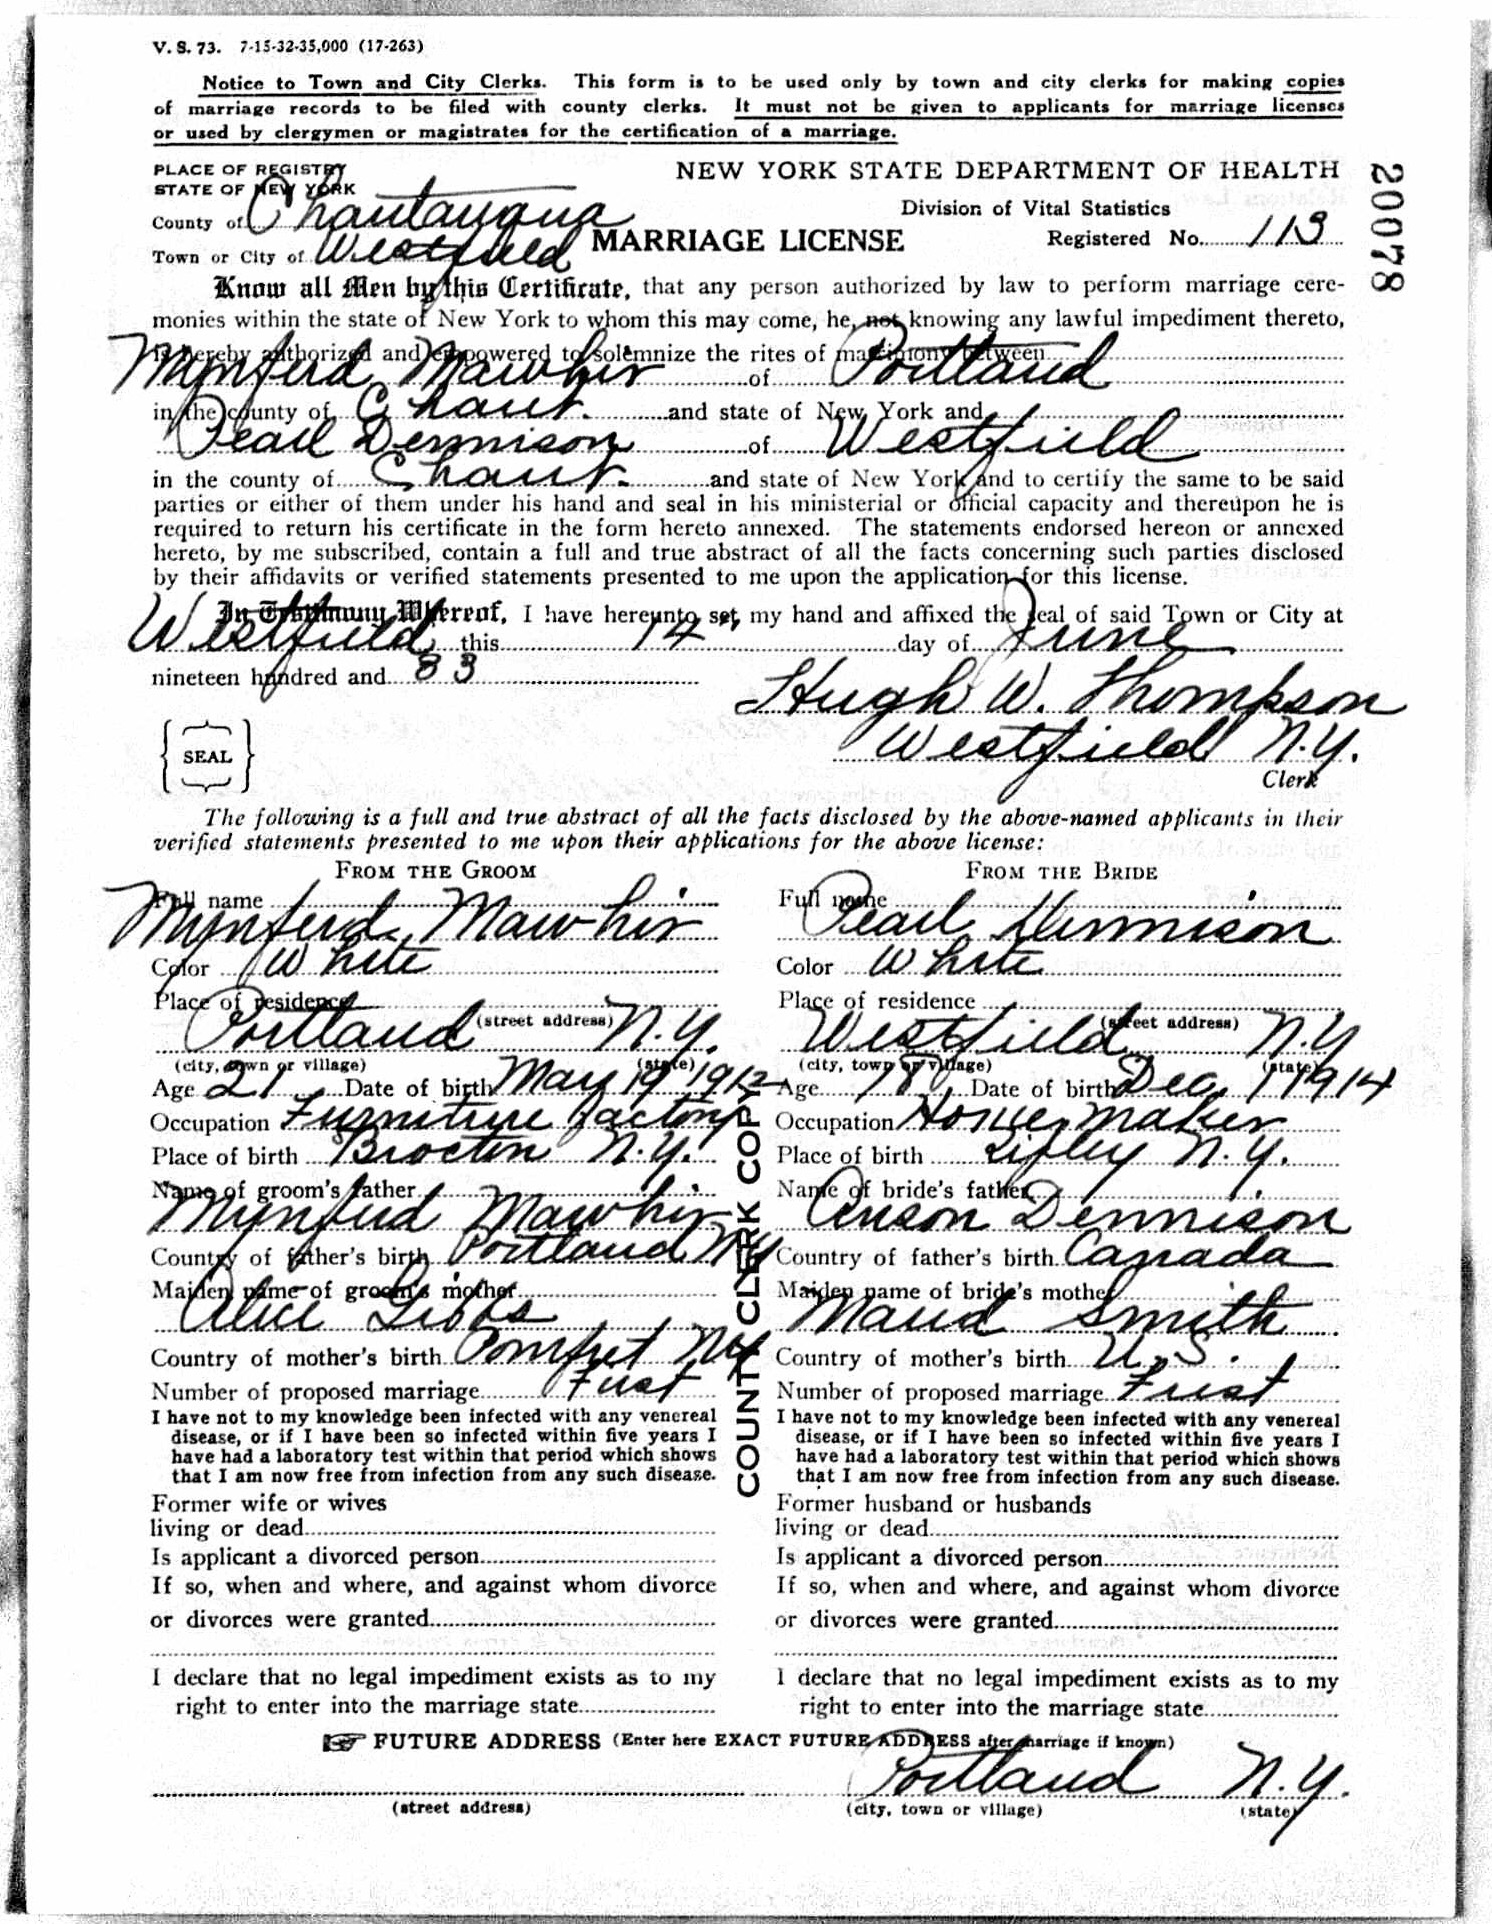 V. S. 73. 7-15-32-35,000 (17-263)
Notice to Town and City Clerks. This form is to be used only by town and city clerks for making copies
of marriage records to be filed with county clerks. It must not be given to applicants for marriage licenses
or used by clergymen or magistrates for the certification of a marriage.
PLACE OF REGISTRY
STATE OF NEW YORK
NEW YORK STATE DEPARTMENT OF HEALTH
20078
County of Chautauqua
Division of Vital Statistics
Town or City of Westfield
MARRIAGE LICENSE
Registered No. 113
Know all Men by this Certificate, that any person authorized by law to perform marriage cere-
monies within the state of New York to whom this may come, he, not knowing any lawful impediment thereto,
is hereby authorized and empowered to solemnize the rites of matrimony between
Mynferd Mawhir of Portland
in the county of Chaut. and state of New York and
Pearl Dennison of Westfield
in the county of Chaut. and state of New York and to certify the same to be said
parties or either of them under his hand and seal in his ministerial or official capacity and thereupon he is
required to return his certificate in the form hereto annexed. The statements endorsed hereon or annexed
hereto, by me subscribed, contain a full and true abstract of all the facts concerning such parties disclosed
by their affidavits or verified statements presented to me upon the application for this license.
In Testimony Whereof, I have hereunto set my hand and affixed the seal of said Town or City at
Westfield, this 14" day of June
nineteen hundred and 33
Hugh W. Thompson
Westfield N.Y.
SEAL
Clerk
The following is a full and true abstract of all the facts disclosed by the above-named applicants in their
verified statements presented to me upon their applications for the above license:
FROM THE GROOM
Full name
Mynferd Mawhir
Color White
Place of residence
(street address)
Portland N.Y.
(city, town or village) (state)
Age 21 Date of birth May 19 1912
Occupation Furniture factory
Place of birth Brocton N.Y.
Name of groom's father
Mynferd Mawhir
Country of father's birth Portland NY
Maiden name of groom's mother
Alice Gibbs
Country of mother's birth Pomfret NY
Number of proposed marriage First
I have not to my knowledge been infected with any venereal
disease, or if I have been so infected within five years I
have had a laboratory test within that period which shows
that I am now free from infection from any such disease.
Former wife or wives
living or dead
Is applicant a divorced person
If so, when and where, and against whom divorce
or divorces were granted
I declare that no legal impediment exists as to my
right to enter into the marriage state
COUNTY CLERK COPY
FROM THE BRIDE
Full name
Pearl Dennison
Color White
Place of residence
(street address)
Westfield N.Y
(city, town or village) (state)
Age 18 Date of birth Dec. 1 1914
Occupation Home maker
Place of birth Ripley N.Y.
Name of bride's father
Anson Dennison
Country of father's birth Canada
Maiden name of bride's mother
Maud Smith
Country of mother's birth U.S.
Number of proposed marriage First
I have not to my knowledge been infected with any venereal
disease, or if I have been so infected within five years I
have had a laboratory test within that period which shows
that I am now free from infection from any such disease.
Former husband or husbands
living or dead
Is applicant a divorced person
If so, when and where, and against whom divorce
or divorces were granted
I declare that no legal impediment exists as to my
right to enter into the marriage state
FUTURE ADDRESS (Enter here EXACT FUTURE ADDRESS after marriage if known)
Portland N.Y.
(street address) (city, town or village) (state)